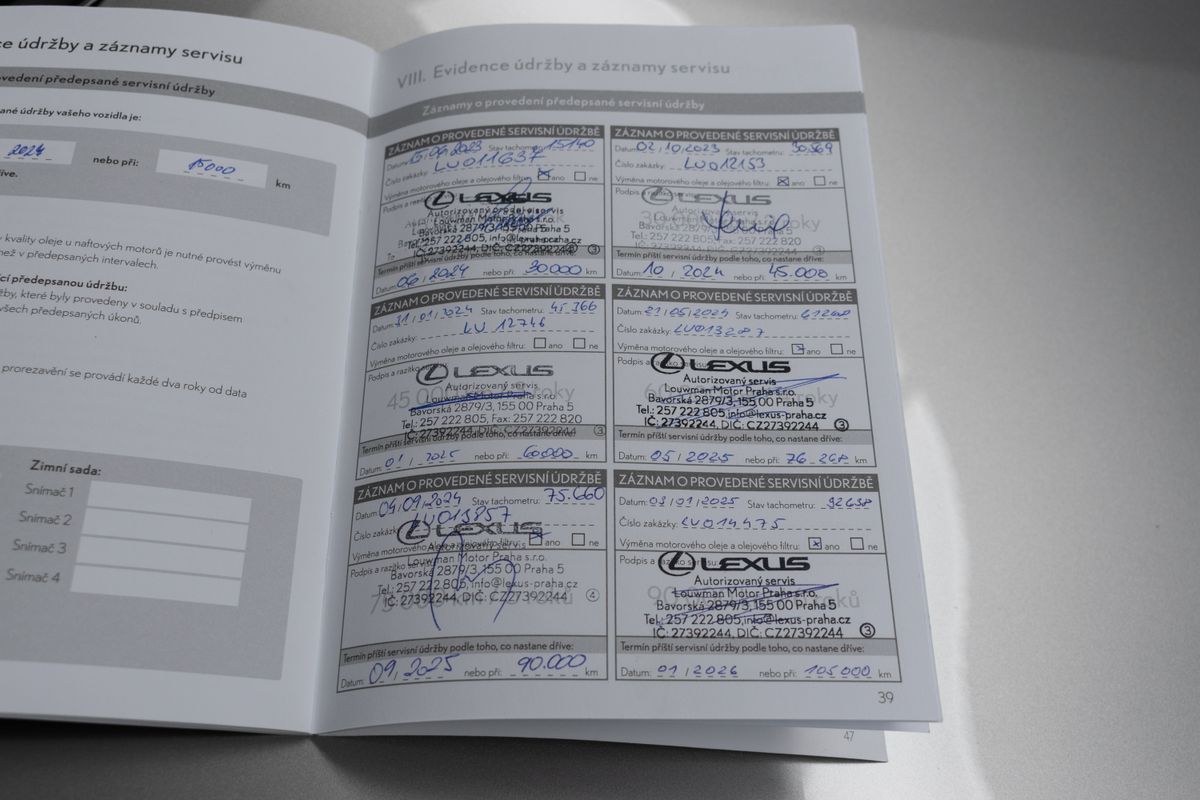 ce údržby a záznamy servisu
ovedení předepsané servisní údržby
ané údržby vašeho vozidla je:
2024 nebo při: 15000 km
říve.
y kvality oleje u naftových motorů je nutné provést výměnu
než v předepsaných intervalech.
cí předepsanou údržbu:
žby, které byly provedeny v souladu s předpisem
všech předepsaných úkonů.
prorezavění se provádí každé dva roky od data
Zimní sada:
Snímač 1
Snímač 2
Snímač 3
Snímač 4
VIII. Evidence údržby a záznamy servisu
Záznamy o provedení předepsané servisní údržby
ZÁZNAM O PROVEDENÉ SERVISNÍ ÚDRŽBĚ
Datum: 15.06.2023 Stav tachometru: 15140
Číslo zakázky: LU011637
Výměna motorového oleje a olejového filtru: ano ne
Podpis a
LEXUS
Louwman Motor Praha s.r.o.
Bavorská 2879/3, 155 Praha 5
Tel.: 257 222 805, info@lexus-praha.cz
IČ: 27392244, DIČ: CZ27392244 3
Termín příští servisní údržby podle toho, co nastane dříve:
06 / 2024 nebo při: 30000 km
ZÁZNAM O PROVEDENÉ SERVISNÍ ÚDRŽBĚ
Datum: 02/10/2023 Stav tachometru: 30.569
Číslo zakázky: LU012153
Výměna motorového oleje a olejového filtru: ano ne
Podpis a
LEXUS
Autorizovaný servis
Louwman Motor Praha s.r.o.
Bavorská 2879/3, Praha 5
Tel.: 257 222 805, Fax: 257 222 820
IČ: 27392244, DIČ: CZ27392244
Termín příští servisní údržby podle toho, co nastane dříve:
Datum: 10 / 2024 nebo při: 45.000 km
ZÁZNAM O PROVEDENÉ SERVISNÍ ÚDRŽBĚ
Datum: 31/01/2024 Stav tachometru: 45 366
Číslo zakázky: LU 12746
Výměna motorového oleje a olejového filtru: ano ne
Podpis a razítko
LEXUS
45 000 roky
Autorizovaný servis
Louwman Motor Praha s.r.o.
Bavorská 2879/3, 155 00 Praha 5
Tel.: 257 222 805, Fax: 257 222 820
IČ: 27392244, DIČ: CZ27392244 3
Termín příští servisní údržby podle toho, co nastane dříve:
Datum: 01 / 2025 nebo při: 60000 km
ZÁZNAM O PROVEDENÉ SERVISNÍ ÚDRŽBĚ
Datum: 21/05/2024 Stav tachometru: 61268
Číslo zakázky: LU013287
Výměna motorového oleje a olejového filtru: ano ne
Podpis a razítko servisu:
LEXUS
Autorizovaný servis
Louwman Motor Praha s.r.o.
Bavorská 2879/3, 155 00 Praha 5
Tel.: 257 222 805, info@lexus-praha.cz
IČ: 27392244, DIČ: CZ27392244 3
Termín příští servisní údržby podle toho, co nastane dříve:
Datum: 05 / 2025 nebo při: 76 268 km
ZÁZNAM O PROVEDENÉ SERVISNÍ ÚDRŽBĚ
Datum: 04/09/2024 Stav tachometru: 75.660
Číslo zakázky: LU013857
LEXUS
Výměna motorového oleje a olejového filtru: ano ne
Autorizovaný servis
Podpis a razítko
Louwman Motor Praha s.r.o.
Bavorská 2879/3, 155 00 Praha 5
Tel.: 257 222 805, info@lexus-praha.cz
IČ: 27392244, DIČ: CZ27392244 4
Termín příští servisní údržby podle toho, co nastane dříve:
Datum: 09 / 2025 nebo při: 90.000 km
ZÁZNAM O PROVEDENÉ SERVISNÍ ÚDRŽBĚ
Datum: 03/01/2025 Stav tachometru: 92638
Číslo zakázky: LU014475
Výměna motorového oleje a olejového filtru: ano ne
Podpis a razítko servisu:
LEXUS
Autorizovaný servis
Louwman Motor Praha s.r.o.
Bavorská 2879/3, 155 00 Praha 5
Tel.: 257 222 805, info@lexus-praha.cz
IČ: 27392244, DIČ: CZ27392244 3
Termín příští servisní údržby podle toho, co nastane dříve:
Datum: 01 / 2026 nebo při: 105000 km
39
47